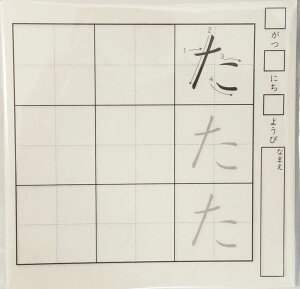 がつ
にち
ようび
なまえ
1 2 3 4
た
た
た